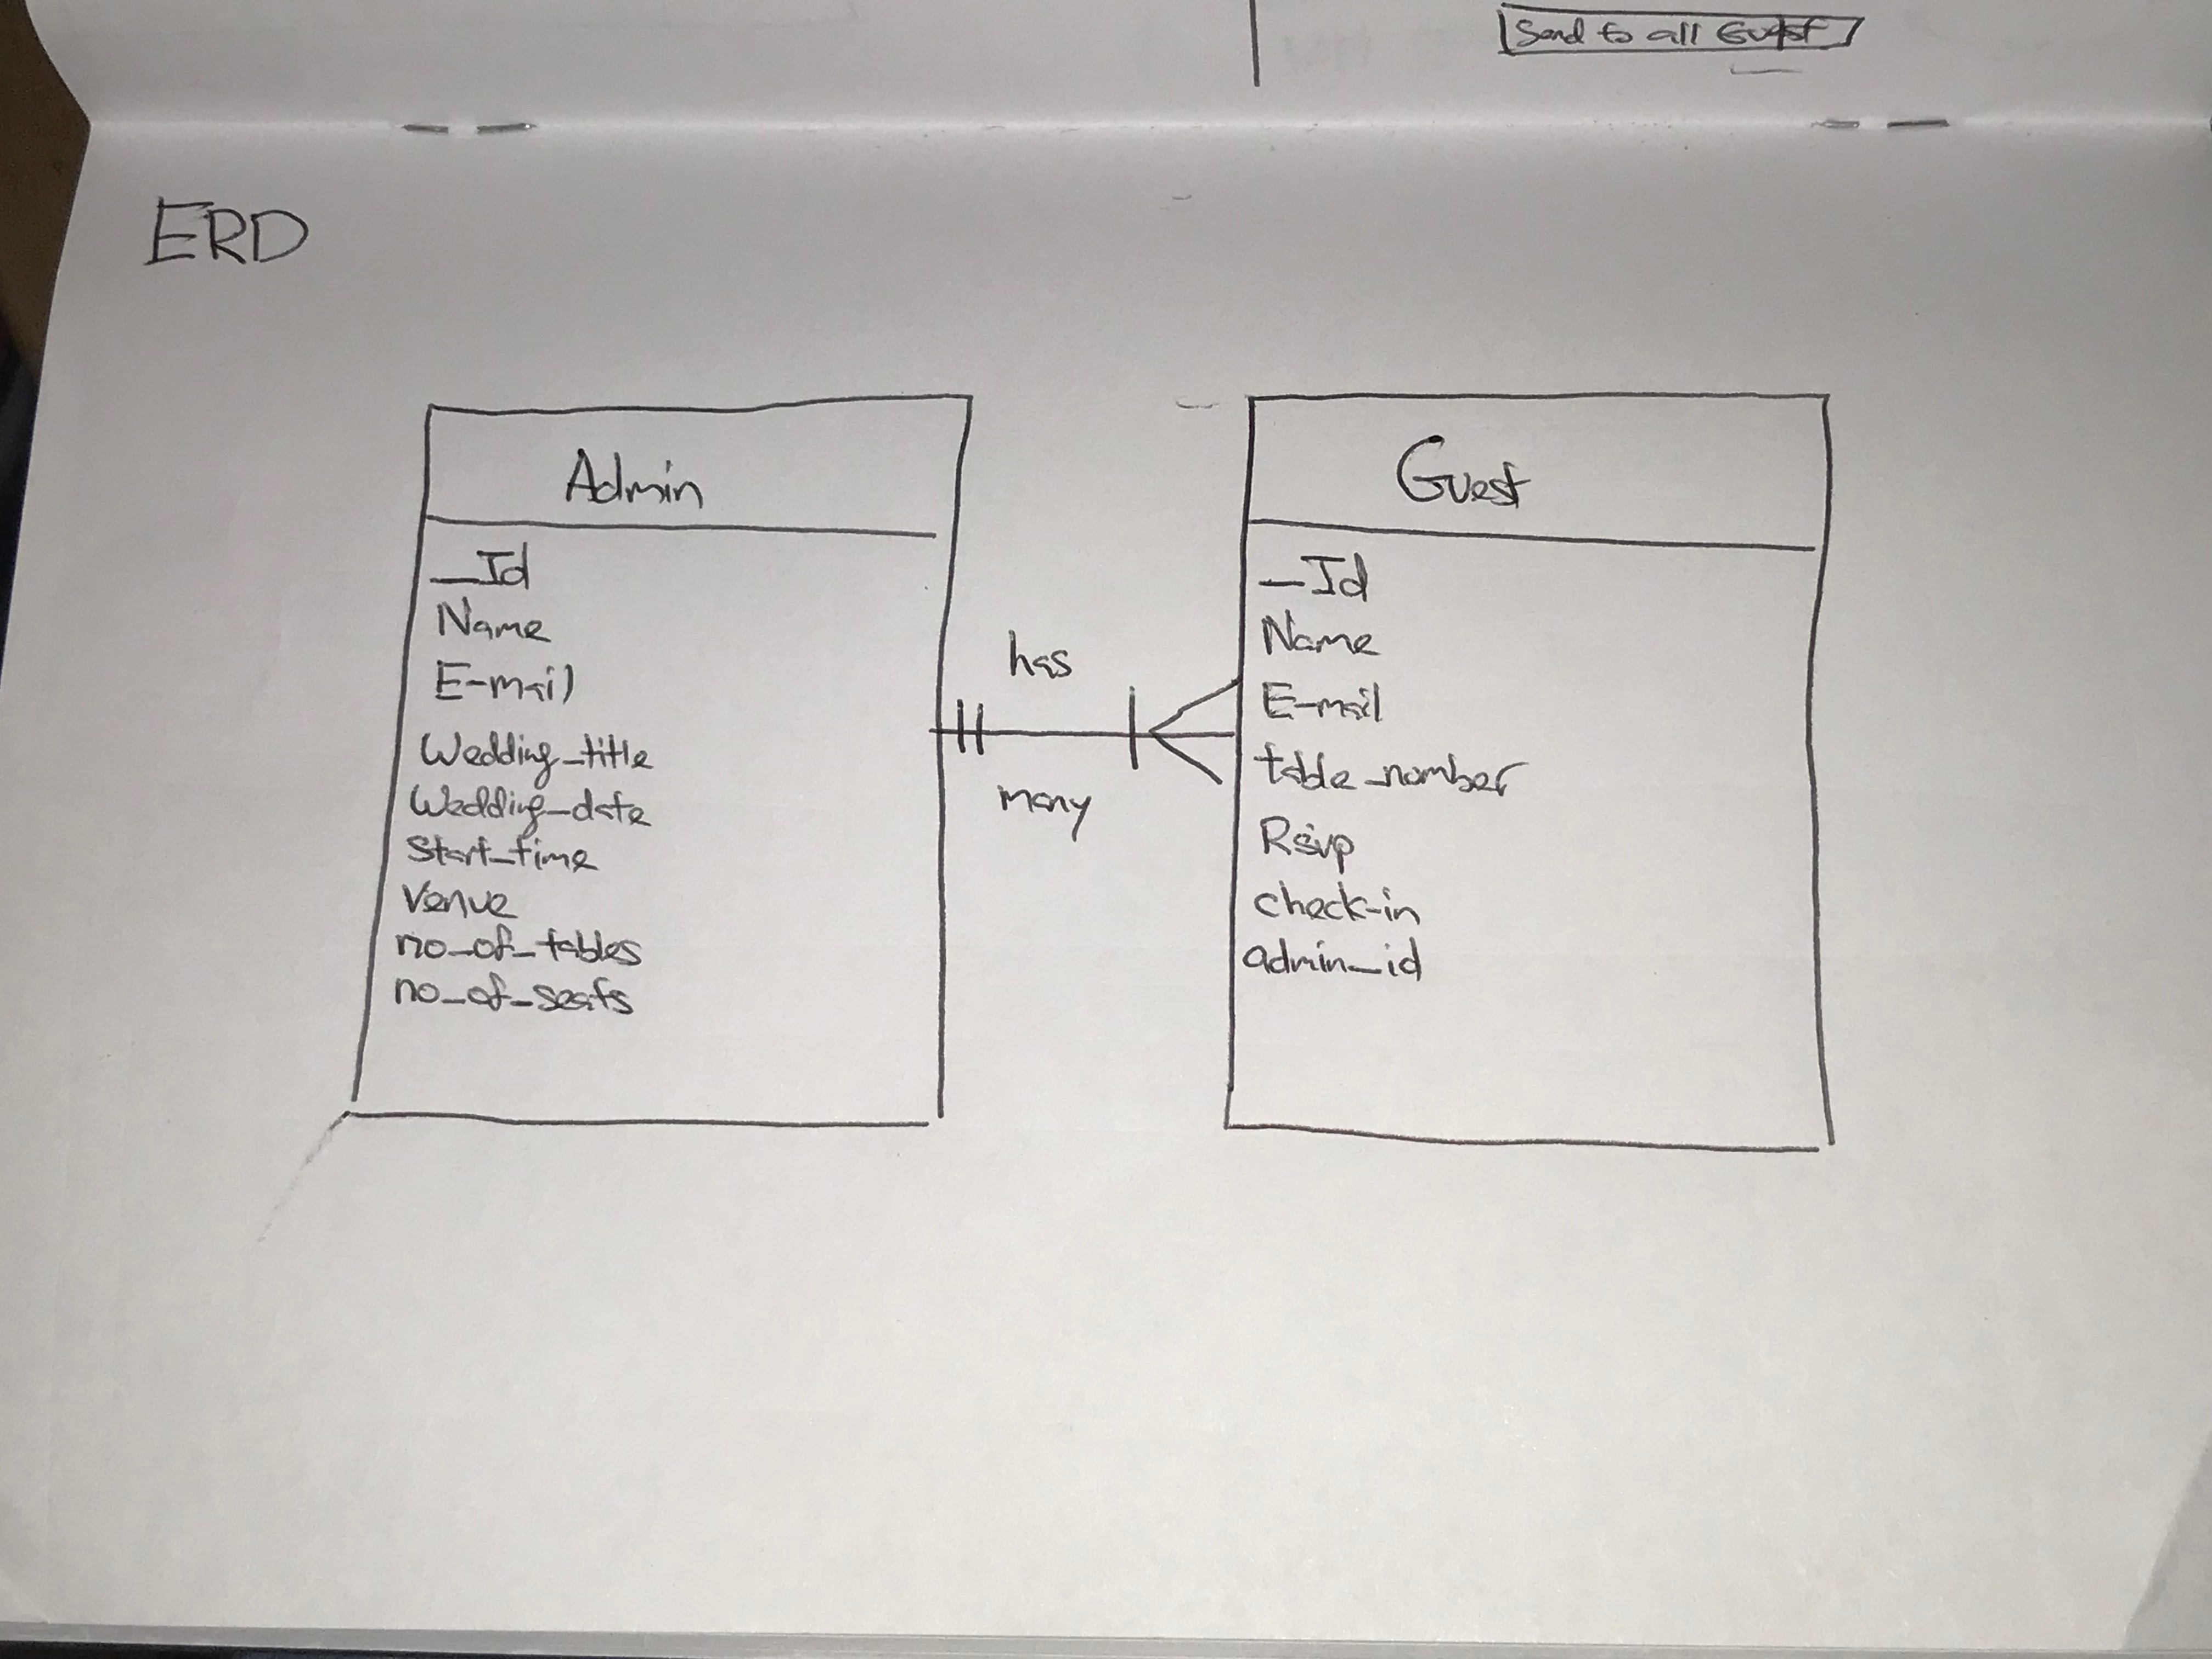 Send to all Guest
ERD
Admin
_Id
Name
E-mail
Wedding_title
Wedding_date
Start_time
Venue
no_of_tables
no_of_seats
has
many
Guest
_Id
Name
E-mail
table_number
Rsvp
check-in
admin_id